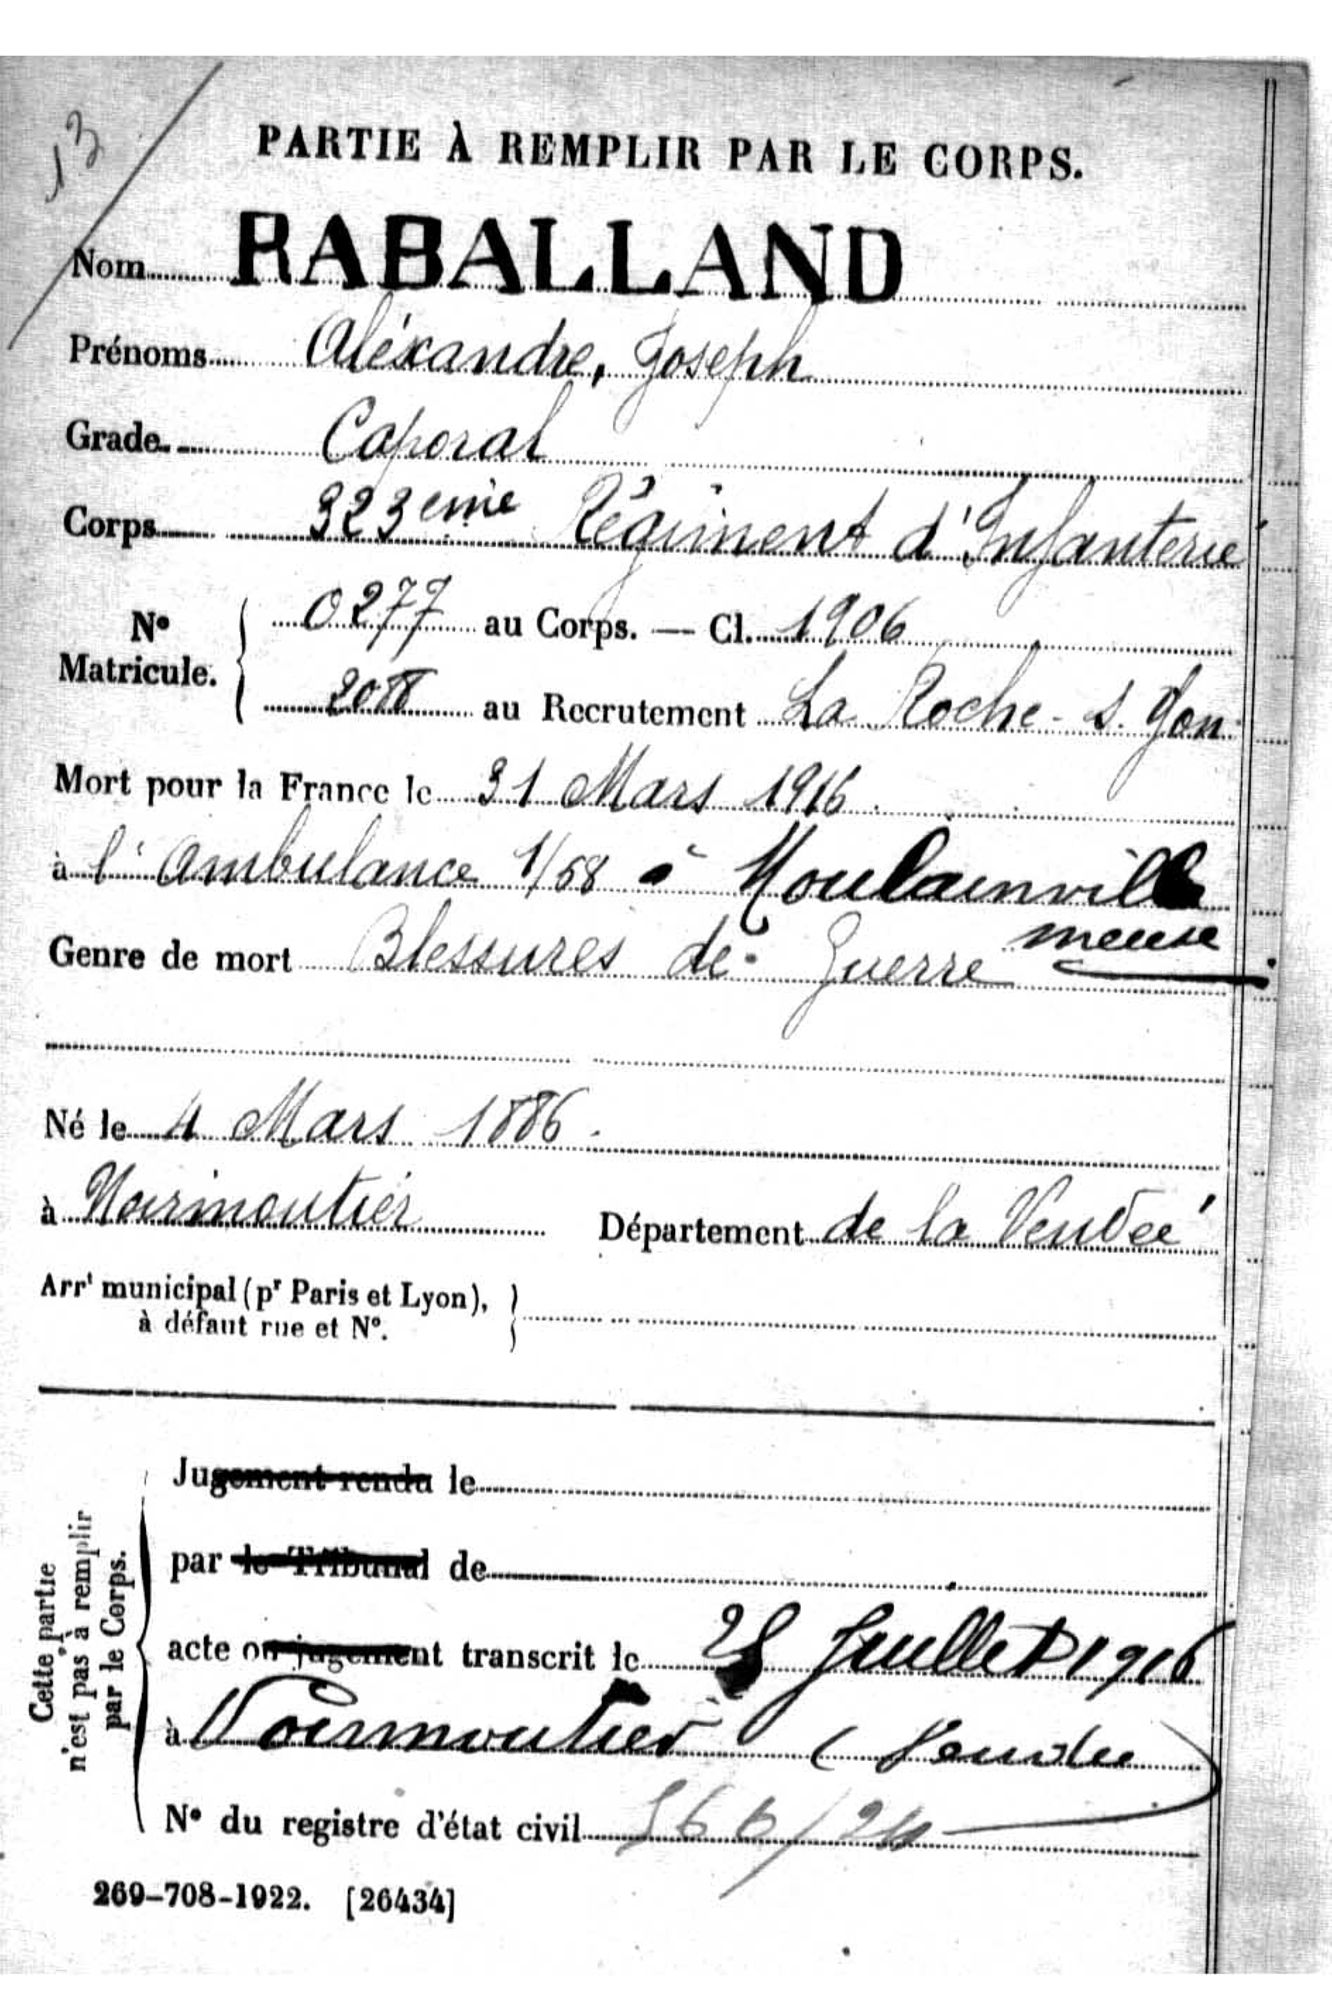 13
PARTIE À REMPLIR PAR LE CORPS.
Nom RABALLAND
Prénoms Aléxandre, Joseph
Grade Caporal
Corps 323eme Régiment d'Infanterie
N° Matricule. 0277 au Corps. — Cl. 1906
2088 au Recrutement La Roche - s. Yon
Mort pour la France le 31 Mars 1916.
à l'Ambulance 1/58 à Moulainville
meuse
Genre de mort Blessures de Guerre
Né le 4 Mars 1886.
à Noirmoutier Département de la Vendée
Arrt municipal (pr Paris et Lyon),
à défaut rue et N°.
Cette partie
n'est pas à remplir
par le Corps.
Jugement rendu le
par le Tribunal de
acte ou jugement transcrit le 28 Juillet 1916
à Noirmoutier (Vendée)
N° du registre d'état civil 566/24
269-708-1922. [26434]